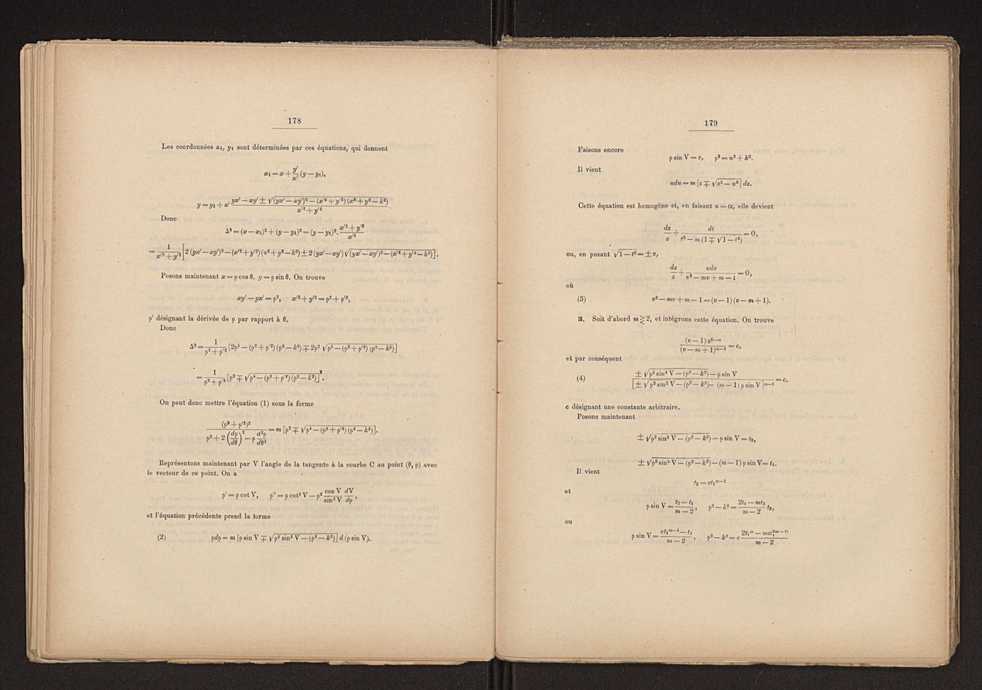 178
Les coordonnées x₁, y₁ sont déterminées par ces équations, qui donnent
x₁ = x + y′/x′ (y — y₁),
y = y₁ + x′ (yx′ — xy′ ± √((yx′ — xy′)² — (x′² + y′²)(x² + y² — k²)))/(x′² + y′²)
Donc
Δ² = (x — x₁)² + (y — y₁)² = (y — y₁)² · (x′² + y′²)/x′²
= 1/(x′² + y′²) [2 (yx′ — xy′)² — (x′² + y′²)(x² + y² — k²) ± 2 (yx′ — xy′) √((yx′ — xy′)² — (x′² + y′²)(x² + y² — k²))].
Posons maintenant x = ρ cos θ, y = ρ sin θ. On trouve
xy′ — yx′ = ρ², x′² + y′² = ρ² + ρ′²,
ρ′ désignant la dérivée de ρ par rapport à θ.
Donc
Δ² = 1/(ρ² + ρ′²) [2ρ⁴ — (ρ² + ρ′²)(ρ² — k²) ∓ 2ρ² √(ρ⁴ — (ρ² + ρ′²)(ρ² — k²))]
= 1/(ρ² + ρ′²) [ρ² ∓ √(ρ⁴ — (ρ² + ρ′²)(ρ² — k²))]².
On peut donc mettre l'équation (1) sous la forme
(ρ² + ρ′²)²/(ρ² + 2 (dρ/dθ)² — ρ d²ρ/dθ²) = m [ρ² ∓ √(ρ⁴ — (ρ² + ρ′²)(ρ² — k²))].
Représentons maintenant par V l'angle de la tangente à la courbe C au point (θ, ρ) avec
le vecteur de ce point. On a
ρ′ = ρ cot V, ρ″ = ρ cot² V — ρ² cos V/sin³ V dV/dρ,
et l'équation précédente prend la forme
(2) ρdρ = m [ρ sin V ∓ √(ρ² sin² V — (ρ² — k²))] d (ρ sin V).
179
Faisons encore
ρ sin V = z, ρ² = u² + k².
Il vient
udu = m [z ∓ √(z² — u²)] dz.
Cette équation est homogène et, en faisant u = tz, elle devient
dz/z + t dt/(t² — m (1 ∓ √(1 — t²))) = 0,
ou, en posant √(1 — t²) = ± v,
dz/z + vdv/(v² — mv + m — 1) = 0,
où
(3) v² — mv + m — 1 = (v — 1)(v — m + 1).
3. Soit d'abord m ≷ 2, et intégrons cette équation. On trouve
(v — 1) z²⁻ᵐ/(v — m + 1)ᵐ⁻¹ = c,
et par conséquent
(4) (± √(ρ² sin² V — (ρ² — k²)) — ρ sin V)/[± √(ρ² sin² V — (ρ² — k²)) — (m — 1) ρ sin V]ᵐ⁻¹ = c,
c désignant une constante arbitraire.
Posons maintenant
± √(ρ² sin² V — (ρ² — k²)) — ρ sin V = t₂,
± √(ρ² sin² V — (ρ² — k²)) — (m — 1) ρ sin V = t₁.
Il vient
t₂ = ct₁ᵐ⁻¹
et
ρ sin V = (t₂ — t₁)/(m — 2), ρ² — k² = (2t₁ — mt₂)/(m — 2) t₂,
ou
ρ sin V = (ct₁ᵐ⁻¹ — t₁)/(m — 2), ρ² — k² = c (2t₁ᵐ — mct₁²ᵐ⁻²)/(m — 2)